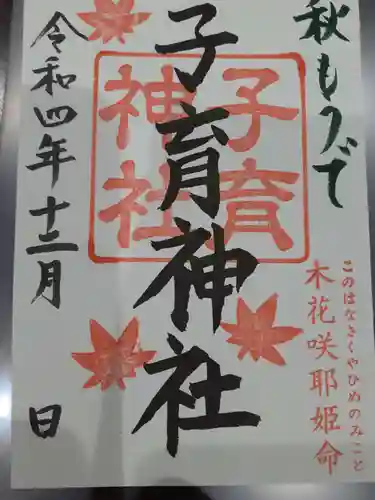 秋もうで
このはなさくやひめのみこと
木花咲耶姫命
子育
神社
子育神社
令和四年十二月 日